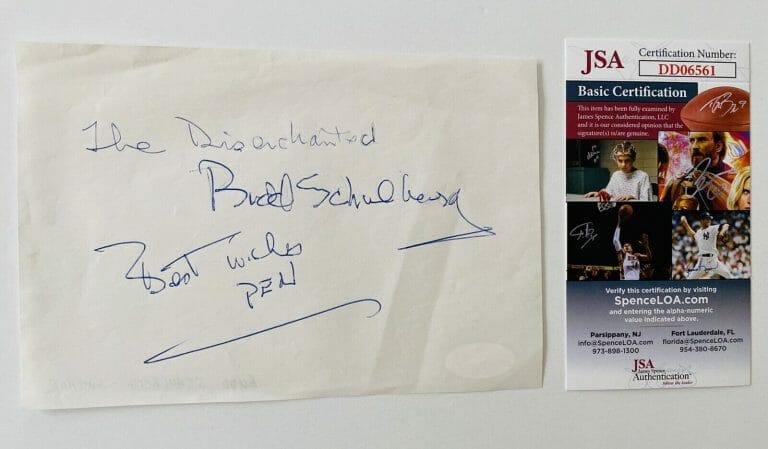 The Disenchanted
Budd Schulberg
Best wishes
PEN
JSA
Certification Number:
DD06561
Basic Certification
This item has been fully examined by
James Spence Authentication, LLC
and it is our considered opinion that the
signature(s) is/are genuine.
Verify this certification by visiting
SpenceLOA.com
and entering the alpha-numeric
value indicated above.
Parsippany, NJ
info@SpenceLOA.com
973-898-1300
Fort Lauderdale, FL
florida@SpenceLOA.com
954-380-8670
JSA
James Spence
Authentication
follow the leader